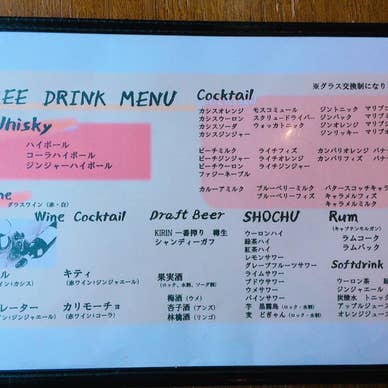 EE DRINK MENU
Whisky
ハイボール
コーラハイボール
ジンジャーハイボール
ne
グラスワイン(赤・白)
Cocktail
※グラス交換制になり
カシスオレンジ モスコミュール ジントニック マリブ
カシスウーロン スクリュードライバー ジンバック マリブ
カシスソーダ ウォッカトニック ジンオレンジ マリブ
カシスジンジャー ジンリッキー マリブ
ピーチミルク ライチフィズ カンパリオレンジ バナ
ピーチオレンジ ライチオレンジ カンパリフィズ バナ
ピーチウーロン ライチジンジャー
ファジーネーブル
カルーアミルク ブルーベリーミルク バタースコッチキャラ
ブルーベリーフィズ キャラメルフィズ
キャラメルミルク
Wine Cocktail
ル キティ
(赤ワイン/ジンジャエール)
レーター カリモーチョ
(赤ワイン/コーラ)
Draft Beer
KIRIN 一番搾り 樽生
シャンディーガフ
果実酒
(ロック、水割、ソーダ割)
梅酒(ウメ)
杏子酒(アンズ)
林檎酒(リンゴ)
SHOCHU
ウーロンハイ
緑茶ハイ
紅茶ハイ
レモンサワー
グレープフルーツサワー
ライムサワー
ブドウサワー
ウメサワー
パインサワー
芋 黒霧島(ロック・水割)
麦 とぎゃん(ロック・水割)
Rum
(キャプテンモルガン)
ラムコーク
ラムバック
Softdrink
ウーロン茶 緑
ジンジャエール
炭酸水 トニック
アップルジュース
オレンジジュース